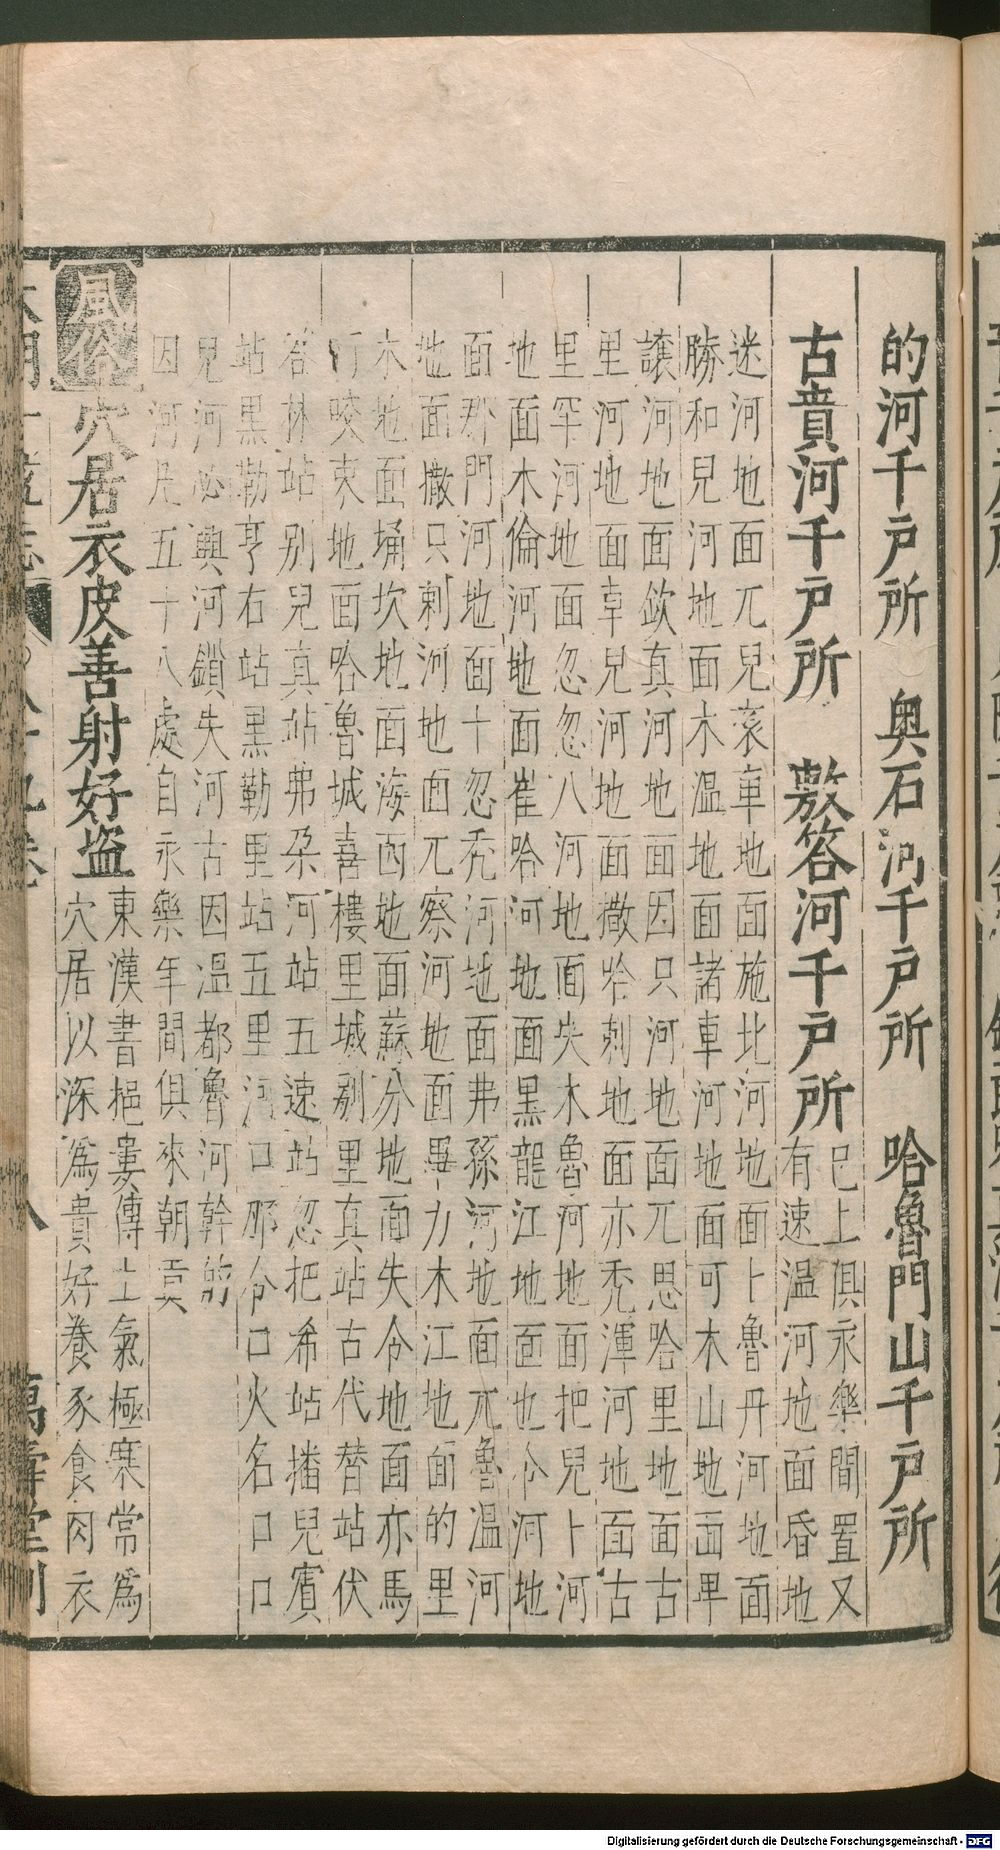 的河千戶所　奥石河千戶所　哈魯門山千戶所
古賁河千戶所　敷答河千戶所
已上俱永樂間置又
有速温河地面昏地
迷河地面兀兒衮車地面施北河地面卜魯丹河地面
勝和兒河地面木温地面諸車河地面可木山地面甲
讓河地面欽真河地面因只河地面兀思哈里地面古
里河地面卓兒河地面撒哈剌地面亦禿渾河地面古
里罕河地面忽忽八河地面失木魯河地面把兒卜河
地面木倫河地面崔哈河地面黒龍江地面也个河地
面那門河地面十忽禿河地面弗孫河地面兀魯温河
地面撒只剌河地面兀察河地面畢力木江地面的里
木地面埇坎地面海西地面蘇分地面失令地面亦馬
河咬束地面哈魯城喜樓里城剔里真站古代替站伏
答林站别兒真站弗朶河站五速站忽把希站播兒賓
站黒勒亨右站黒勒里站五里河口那令口火名口口
兒河必興河鎖失河古因温都魯河幹的
因河凡五十八處自永樂年間俱來朝貢
風俗
穴居衣皮善射好盗
東漢書挹婁傳土氣極寒常爲
穴居以深爲貴好養豕食肉衣
萬壽堂刊
Digitalisierung gefördert durch die Deutsche Forschungsgemeinschaft - DFG